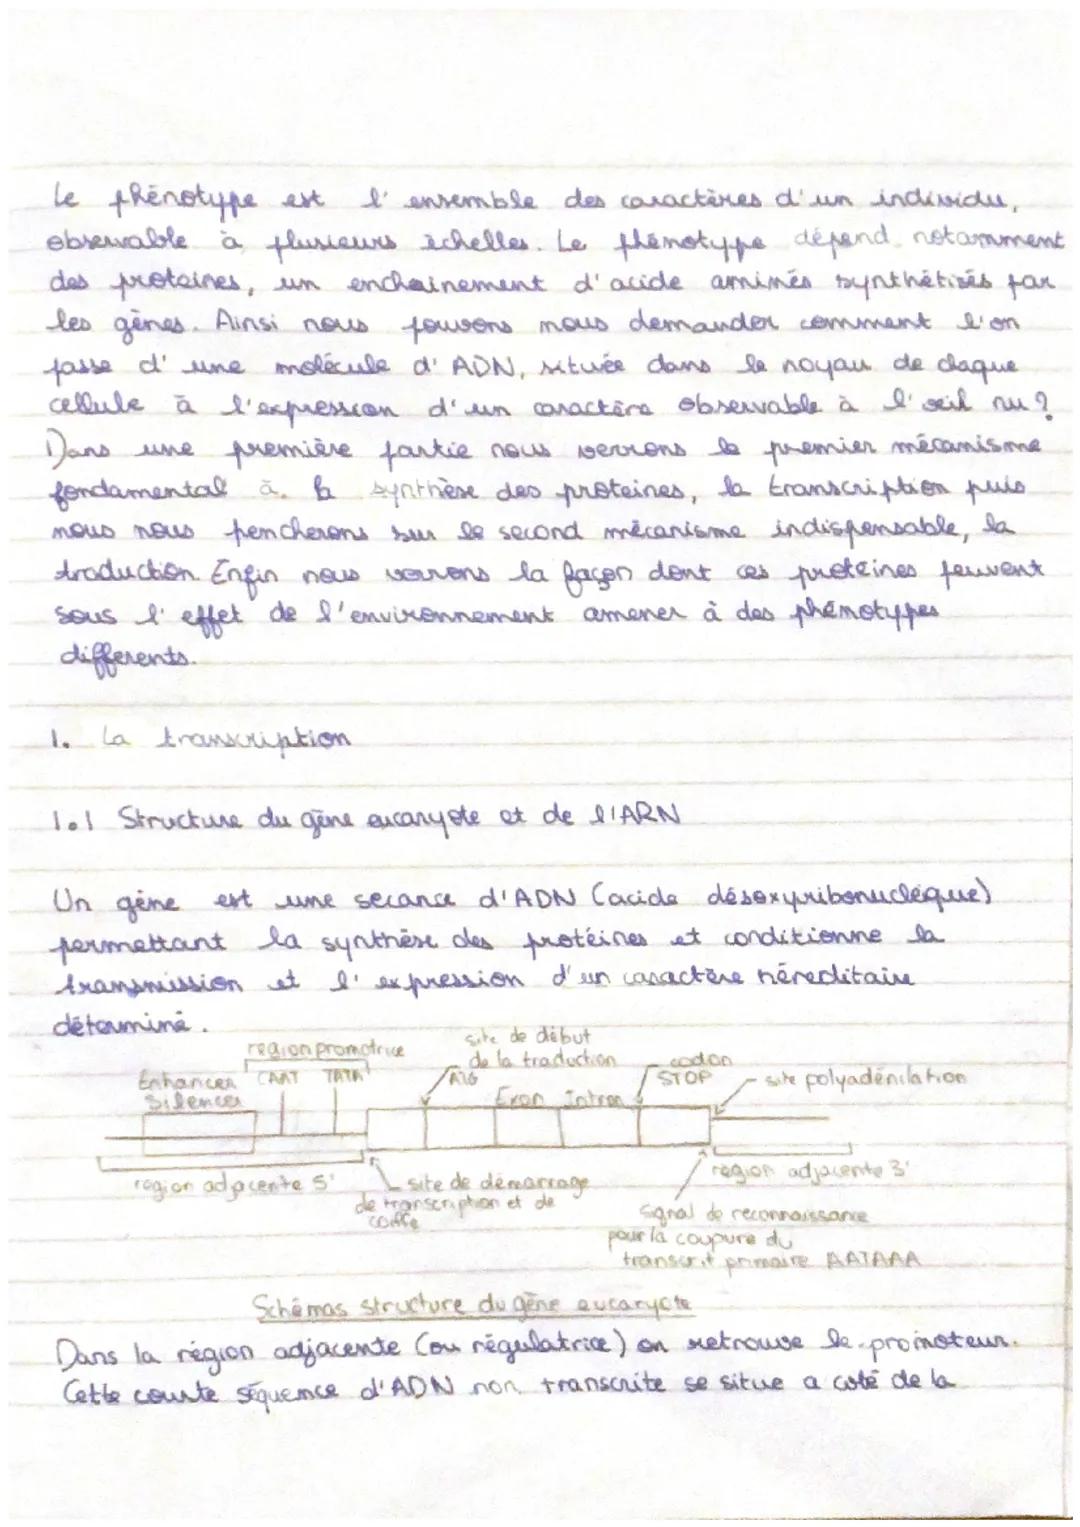 Le phénotype est l'ensemble des caractères d'un individu,
observable à plusieurs échelles. Le phénotype dépend notamment
des proteines, un enchainement d'acide aminés synthétisés par
les gènes. Ainsi nous pouvons nous demander comment l'on
passe d'une molécule d'ADN, située dans le noyau de chaque
cellule à l'expression d'un caractère observable à l'oeil nu ?
Dans une première partie nous verrons le premier mécanisme
fondamental à la synthèse des proteines, la transcription puis
nous nous pencherons sur le second mécanisme indispensable, la
traduction. Enfin nous verrons la façon dont ces proteines peuvent
sous l'effet de l'environnement amener à des phénotypes
differents.
1. La transcription
1.1 Structure du gène eucaryote et de l'ARN
Un gène est une secance d'ADN (acide désoxyribonucléique)
permettant la synthèse des protéines et conditionne la
transmission et l'expression d'un caractère héréditaire
déterminé.
region promotrice
site de début
de la traduction
codon
STOP
Enhancer
Silencer
CAAT TATA
ATG
site polyadénilation
Exon Intron
region adjacente 5'
site de démarrage
de transcription et de
coiffe
région adjacente 3'
signal de reconnaissance
pour la coupure du
transcrit primaire AATAAA
Schémas structure du gène eucaryote
Dans la région adjacente (ou régulatrice) on retrouve le promoteur.
Cette courte séquence d'ADN non transcrite se situe a coté de la